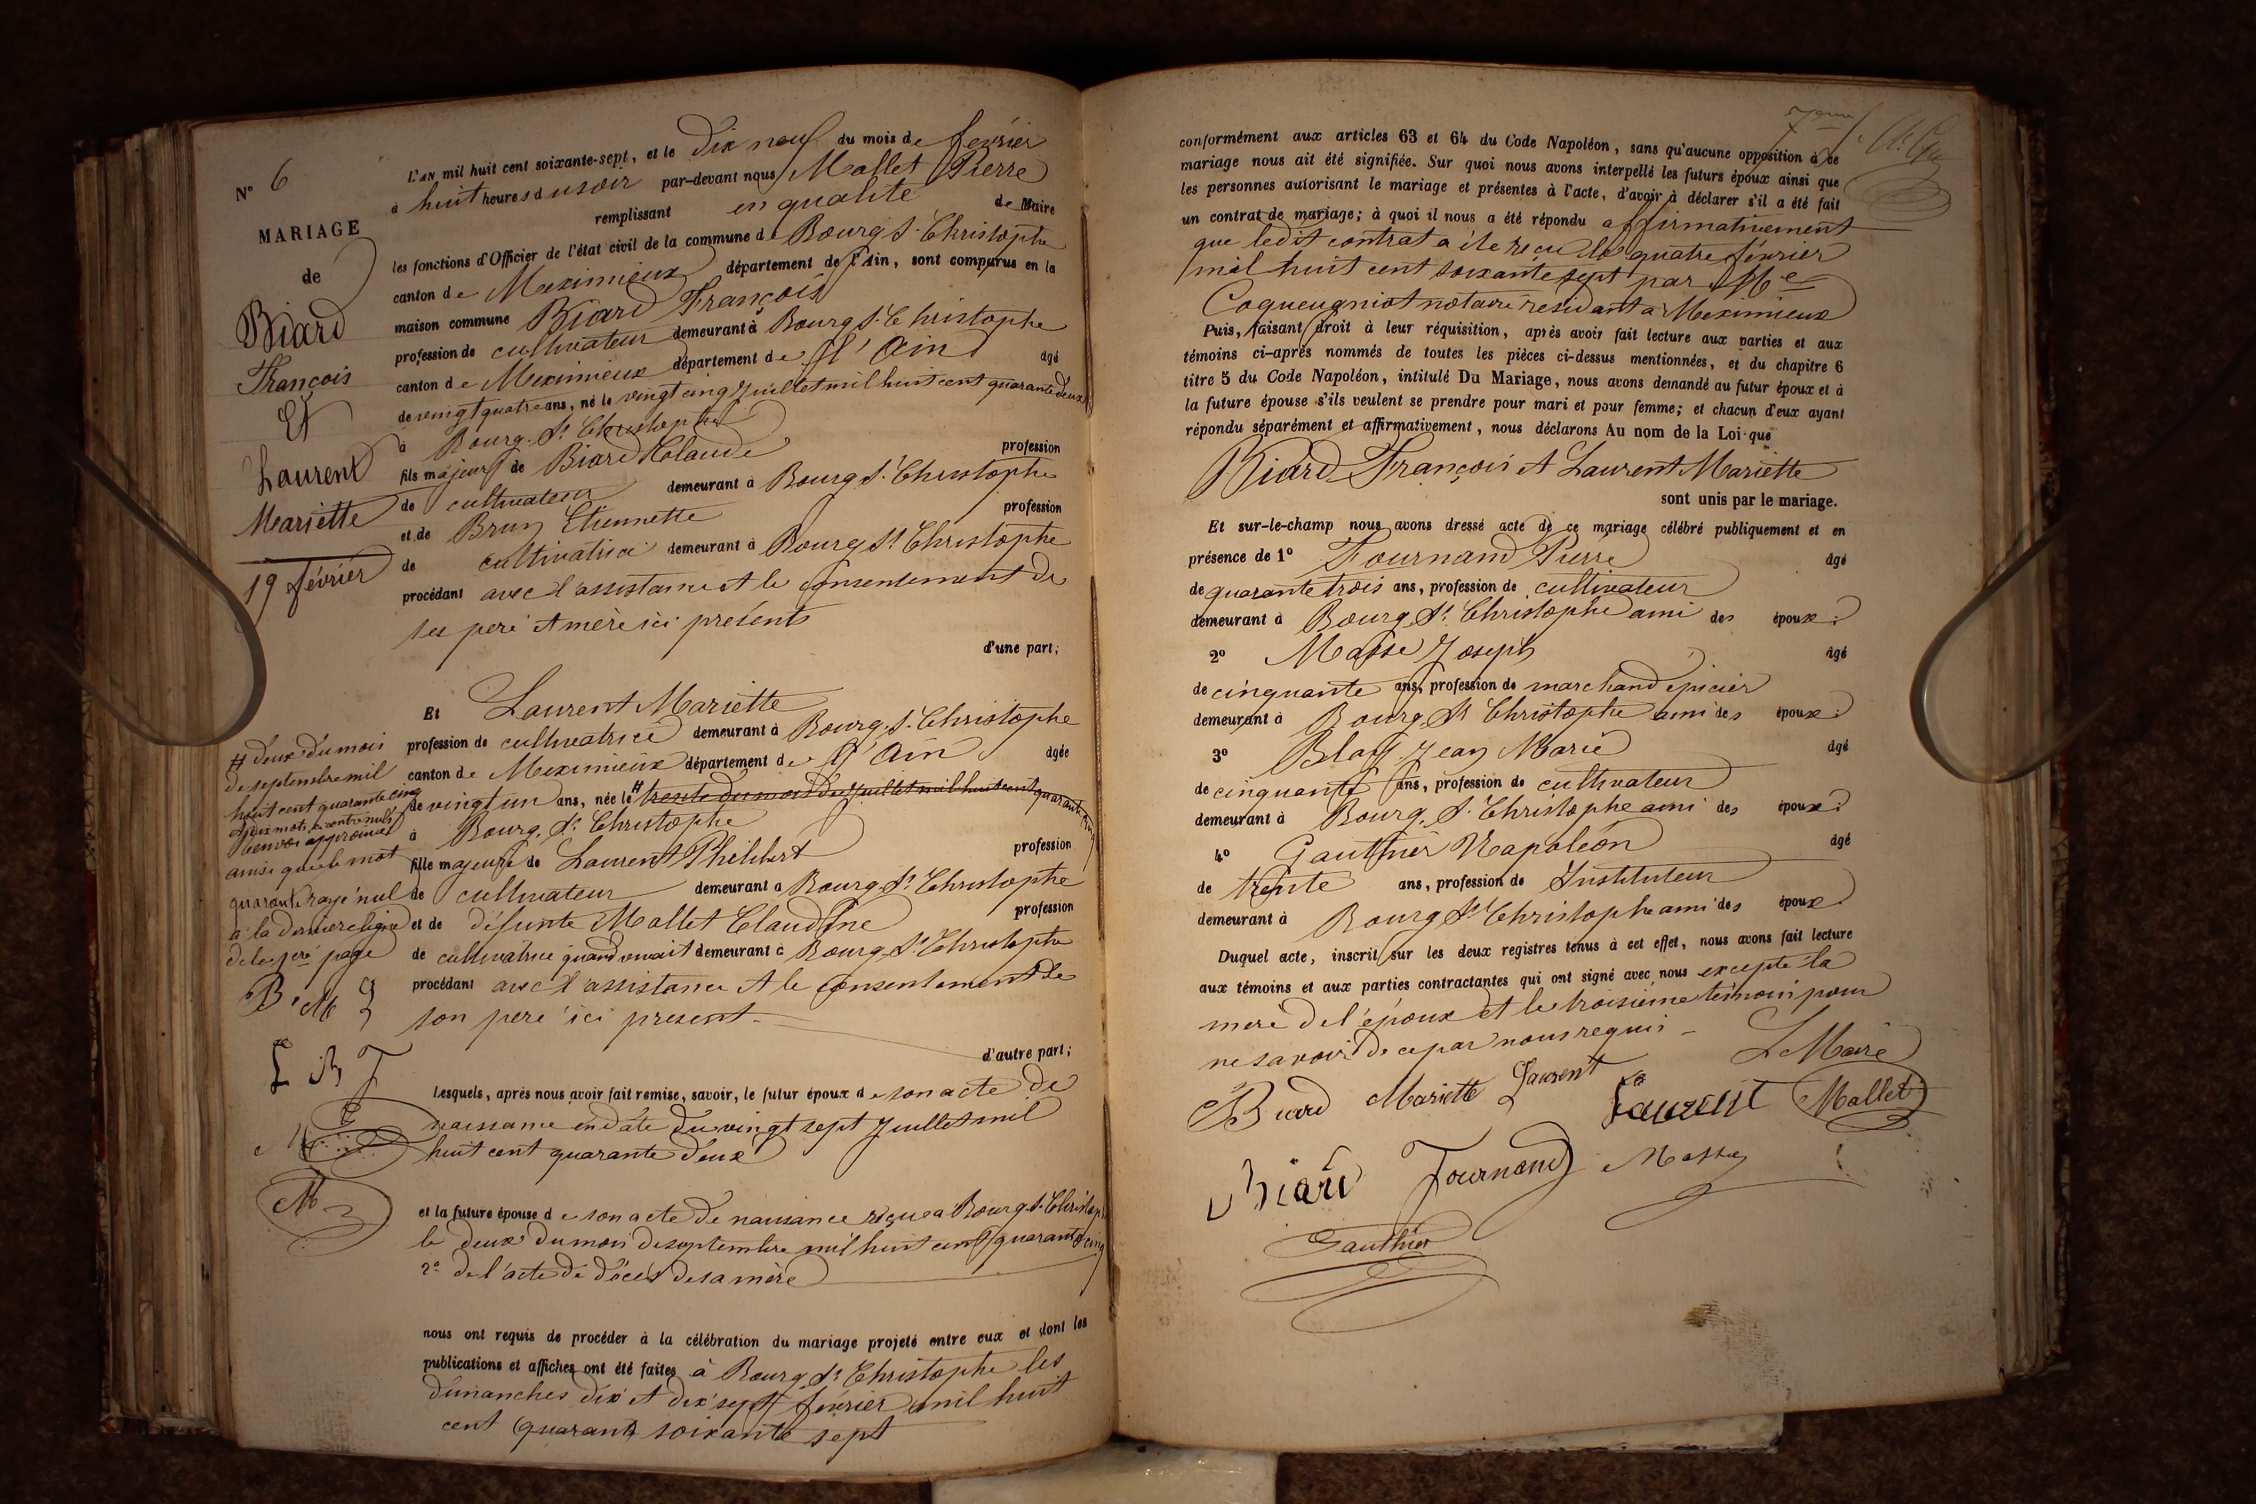 N° 6
MARIAGE
de
Biard
François
Et
Laurent
Mariette
19 février
L'AN mil huit cent soixante-sept, et le dix neuf du mois de février
à huit heures du soir par-devant nous Mallet Pierre
remplissant en qualité de Maire
les fonctions d'Officier de l'état civil de la commune de Bourg St Christophe
canton de Meximieux département de l'Ain, sont comparus en la
maison commune Biard François
profession de cultivateur demeurant à Bourg St Christophe
canton de Meximieux département de l'Ain âgé
de vingt quatre ans, né le vingt cinq Juillet mil huit cent quarante deux
à Bourg St Christophe
fils majeur de Biard Claude profession
de cultivateur demeurant à Bourg St Christophe
et de Brun Etiennette profession
de cultivatrice demeurant à Bourg St Christophe
procédant avec l'assistance et le consentement de
ses père et mère ici présents
d'une part;
Et Laurent Mariette
profession de cultivatrice demeurant à Bourg St Christophe
canton de Meximieux département de l'Ain âgée
de vingt un ans, née le # trente du mois de Juillet mil huit cent quarante cinq
à Bourg St Christophe
fille majeure de Laurent Philibert profession
de cultivateur demeurant à Bourg St Christophe
et de défunte Mallet Claudine profession
de cultivatrice quand vivait demeurant à Bourg St Christophe
procédant avec l'assistance et le consentement de
son père ici présent
d'autre part;
# deux du mois
de septembre mil
huit cent quarante cinq
renvoi approuvé
ainsi que le mot
quarante rayé nul
à la dernière ligne
de la 1ère page
B M
L B F
M
Lesquels, après nous avoir fait remise, savoir, le futur époux de son acte de
naissance en date du vingt sept Juillet mil
huit cent quarante deux
et la future épouse de son acte de naissance reçue a Bourg St Christophe
le deux du mois de septembre mil huit cent quarante cinq
2° de l'acte de décès de sa mère
nous ont requis de procéder à la célébration du mariage projeté entre eux et dont les
publications et affiches ont été faites à Bourg St Christophe les
dimanches dix et dix sept février mil huit
cent quarante soixante sept
conformément aux articles 63 et 64 du Code Napoléon, sans qu'aucune opposition à ce
mariage nous ait été signifiée. Sur quoi nous avons interpellé les futurs époux ainsi que
les personnes autorisant le mariage et présentes à l'acte, d'avoir à déclarer s'il a été fait
un contrat de mariage; à quoi il nous a été répondu affirmativement
que ledit contrat a été reçu le quatre février
mil huit cent soixante sept par Me
Coqueugniot notaire résidant à Meximieux
Puis, faisant droit à leur réquisition, après avoir fait lecture aux parties et aux
témoins ci-après nommés de toutes les pièces ci-dessus mentionnées, et du chapitre 6
titre 5 du Code Napoléon, intitulé Du Mariage, nous avons demandé au futur époux et à
la future épouse s'ils veulent se prendre pour mari et pour femme; et chacun d'eux ayant
répondu séparément et affirmativement, nous déclarons Au nom de la Loi que
Biard François et Laurent Mariette
sont unis par le mariage.
Et sur-le-champ nous avons dressé acte de ce mariage célébré publiquement et en
présence de 1° Fournand Pierre âgé
de quarante trois ans, profession de cultivateur
demeurant à Bourg St Christophe ami des époux
2° Masse Joseph âgé
de cinquante ans, profession de marchand épicier
demeurant à Bourg St Christophe ami des époux
3° Jean Marie âgé
de cinquante ans, profession de cultivateur
demeurant à Bourg St Christophe ami des époux
4° Gauthier Napoléon âgé
de trente ans, profession de Instituteur
demeurant à Bourg St Christophe ami des époux
Duquel acte, inscrit sur les deux registres tenus à cet effet, nous avons fait lecture
aux témoins et aux parties contractantes qui ont signé avec nous excepté la
mère de l'époux et le troisième témoin pour
ne savoir de ce par nous requis
Le Maire
Biard Mariette Laurent Laurent Mallet
Biard Fournand Masse
Gauthier